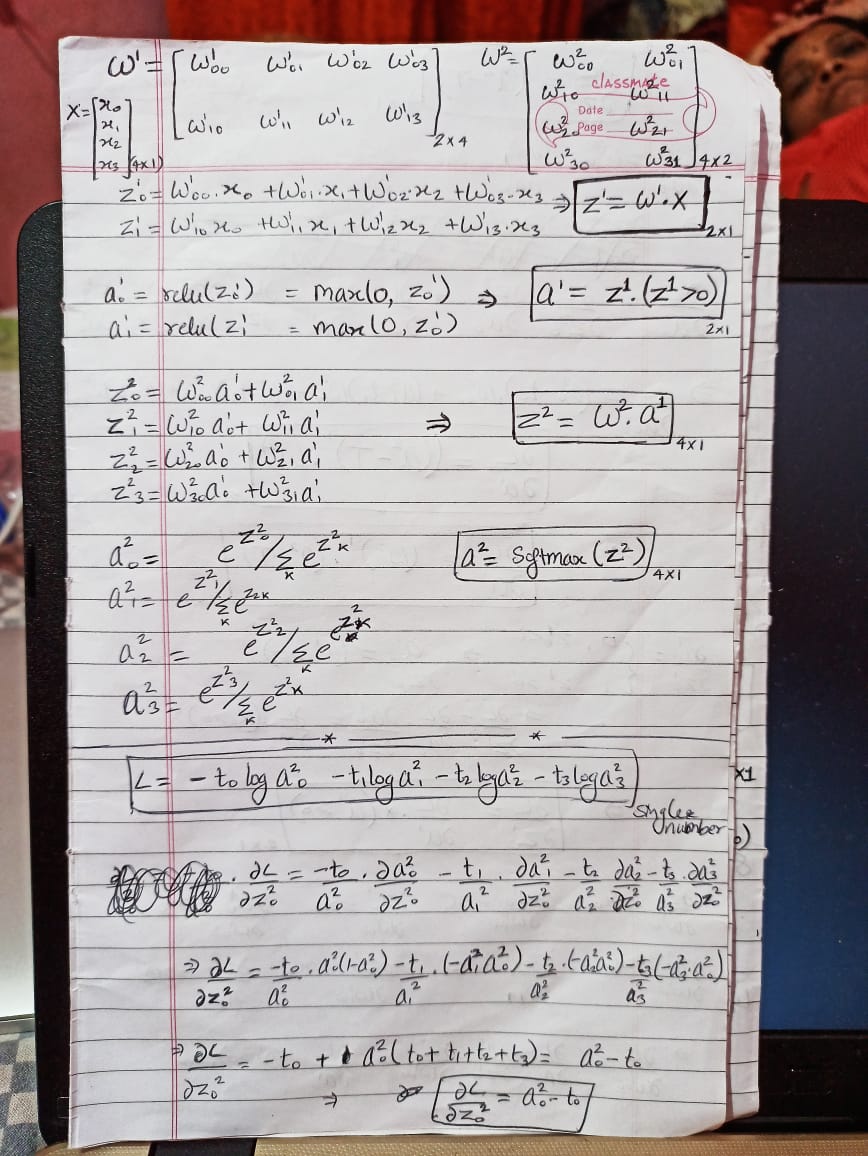 W¹ = [ W¹₀₀ W¹₀₁ W¹₀₂ W¹₀₃ W² = [ W²₀₀ W²₀₁
classmate
X = [ x₀ x₁ x₂ x₃ ] (4x1)
W¹₁₀ W¹₁₁ W¹₁₂ W¹₁₃ ] 2x4
W²₁₀ W²₁₁
Date
Page
W²₂₀ W²₂₁
W²₃₀ W²₃₁ ] 4x2
z¹₀ = W¹₀₀·x₀ + W¹₀₁·x₁ + W¹₀₂·x₂ + W¹₀₃·x₃ ⇒ z¹ = W¹·X
z¹₁ = W¹₁₀ x₀ + W¹₁₁ x₁ + W¹₁₂ x₂ + W¹₁₃·x₃ 2x1
a¹₀ = relu(z¹₀) = max(0, z¹₀) ⇒ a¹ = z¹·(z¹>0)
a¹₁ = relu(z¹₁ = max(0, z¹₀) 2x1
z²₀ = W²₀₀ a¹₀ + W²₀₁ a¹₁
z²₁ = W²₁₀ a¹₀ + W²₁₁ a¹₁ ⇒ z² = W²·a¹ 4x1
z²₂ = W²₂₀ a¹₀ + W²₂₁ a¹₁
z²₃ = W²₃₀ a¹₀ + W²₃₁ a¹₁
a²₀ = e^z²₀ / Σₖ e^z²ₖ a² = Softmax (z²) 4x1
a²₁ = e^z²₁ / Σₖ e^z²ₖ
a²₂ = e^z²₂ / Σₖ e^z²ₖ
a²₃ = e^z²₃ / Σₖ e^z²ₖ
L = - t₀ log a²₀ - t₁ log a²₁ - t₂ log a²₂ - t₃ log a²₃ x1
single number )
· ∂L/∂z²₀ = -t₀/a²₀ · ∂a²₀/∂z²₀ - t₁/a₁² · ∂a²₁/∂z²₀ - t₂/a²₂ ∂a²₂/∂z²₀ - t₃/a²₃ · ∂a²₃/∂z²₀
⇒ ∂L/∂z²₀ = -t₀/a²₀ · a²₀(1-a²₀) - t₁/a₁² · (-a²₁a²₀) - t₂/a²₂ · (-a²₂a²₀) - t₃/a²₃ (-a²₃·a²₀)
⇒ ∂L/∂z₀² = -t₀ + a²₀(t₀+ t₁+t₂+t₃) = a²₀-t₀
⇒ ∂L/∂z²₀ = a²₀- t₀